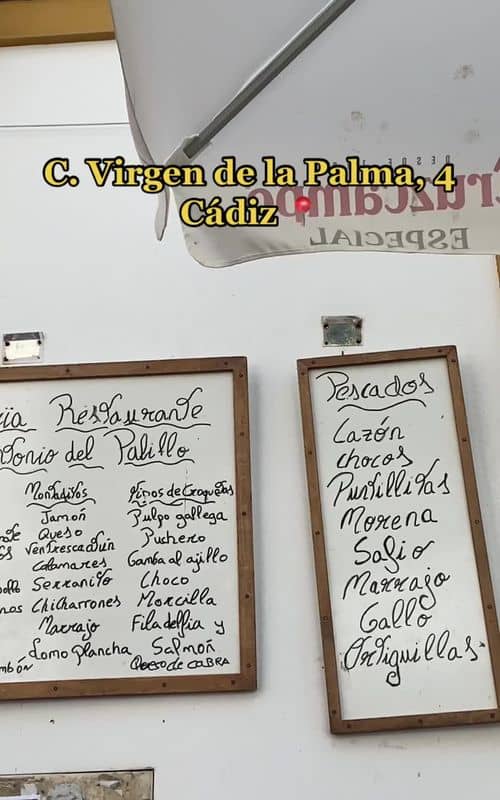 C. Virgen de la Palma, 4
Cádiz
DESDE
Cruzcampo
ESPECIAL
Restaurante
del Palillo
Montaditos
Jamón
Queso
Ventresca atún
Calamares
Serranito
Chicharrones
Marrajo
Lomo plancha
Tipos de Croquetas
Pulpo gallega
Puchero
Gamba al ajillo
Choco
Morcilla
Filadelfia y
Salmón
Queso de CABRA
Pescados
Cazón
Chocos
Puntillitas
Morena
Safio
Marrajo
Gallo
Ortiguillas